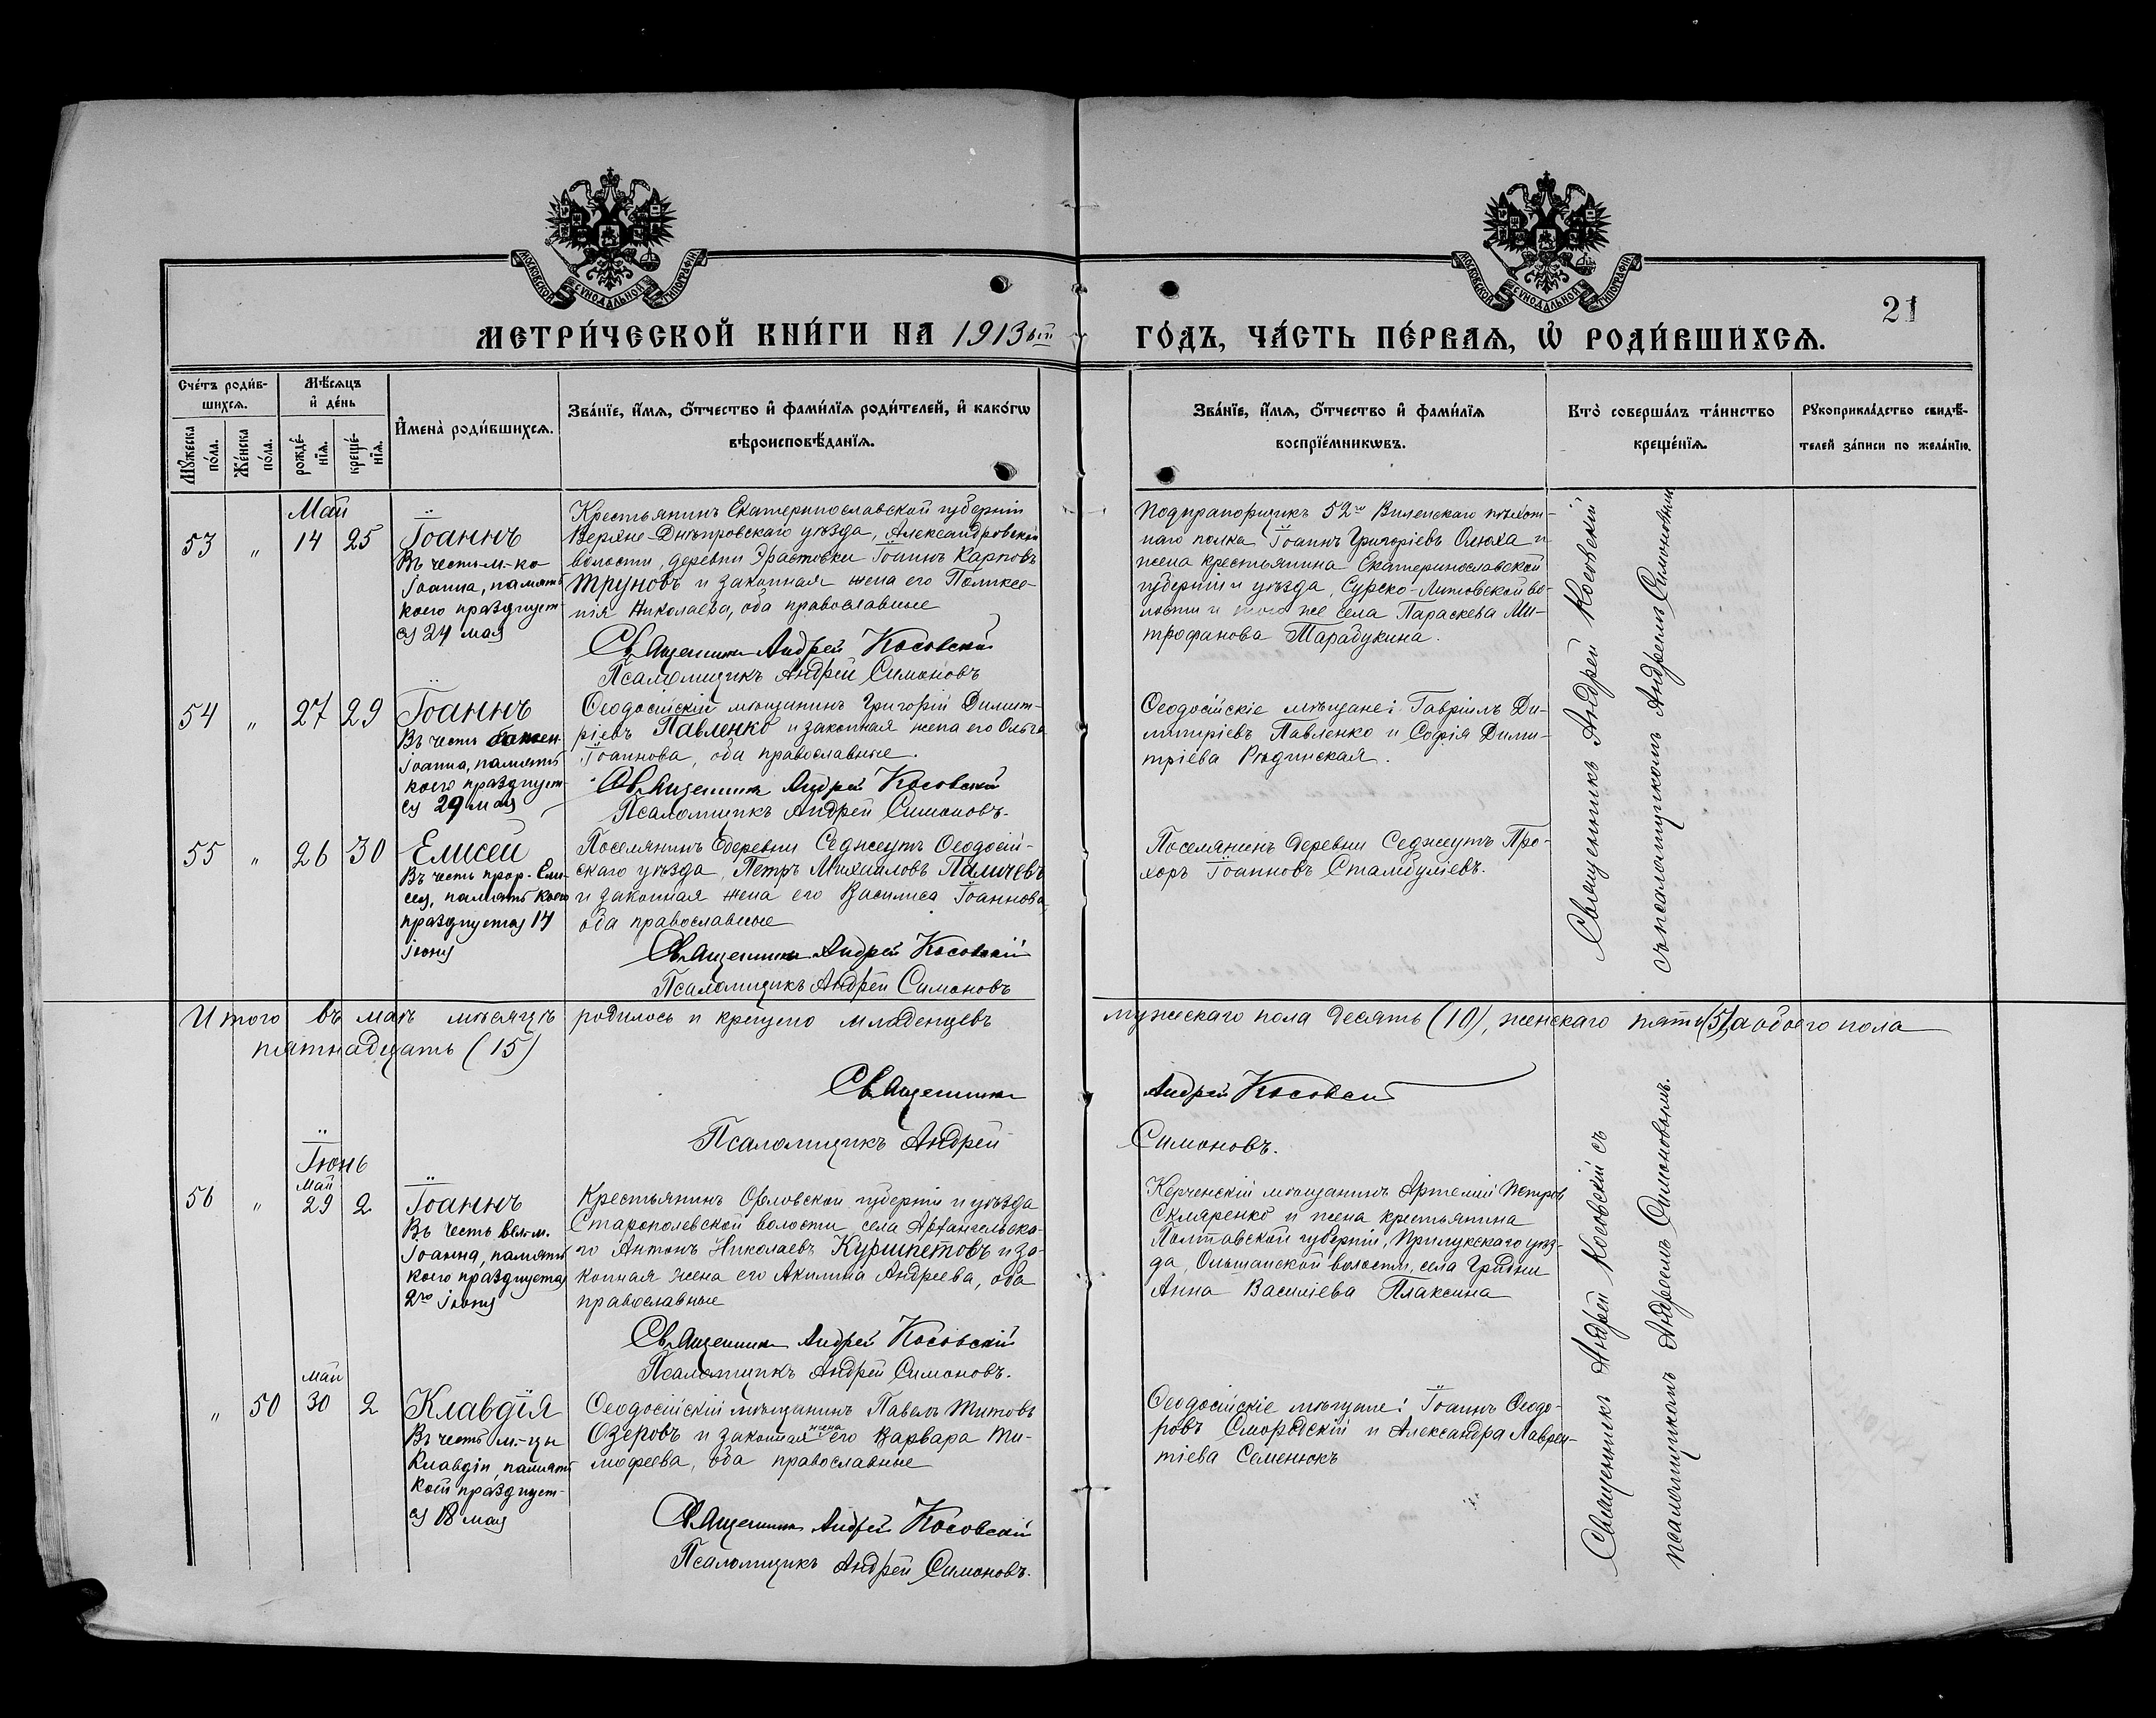 МОСКОВСКОЙ СУНОДАЛЬНОЙ ТИПОГРАФІИ
МОСКОВСКОЙ СУНОДАЛЬНОЙ ТИПОГРАФІИ
21
МЕТРИ́ЧЕСКОЙ КНИ́ГИ НА 1913ый
ГО́ДЪ, ЧА́СТЬ ПЕ́РВАѦ, Ѽ РОДИ́ВШИХСѦ.
Сче́тъ роди́в-
шихсѧ.
Мꙋжеска по́ла.
Же́нска по́ла.
Мѣ́сѧцъ
и҆ де́нь
рожде́-
нїѧ.
креще́-
нїѧ.
И҆мена̀ роди́вшихсѧ.
Зва́нїе, и҆́мѧ, ѻ҆́тчество и҆ фами́лїѧ роди́телей, и҆ како́гѡ
вѣроисповѣ́данїѧ.
Зва́нїе, и҆́мѧ, ѻ҆́тчество и҆ фами́лїѧ
воспрїе́мникѡвъ.
Кто̀ соверша́лъ та́инство
креще́нїѧ.
Рꙋкоприкла́дство свидѣ́-
телей за́писи по жела́нїю.
Май
53 „ 14 25
Іоаннъ
Въ честь м-ка
Іоанна, память
коего празднует-
ся 24 мая
Крестьянинъ Екатеринославской губерніи
Верхне-Днѣпровскаго уѣзда, Александровской
волости, деревни Эрастовки Іоаннъ Карповъ
Труновъ и законная жена его Поликсе-
нія Николаева, оба православные
Священникъ Андрей Косовскій
Псаломщикъ Андрей Симоновъ
Подпрапорщикъ 52го Виленскаго пѣхот-
наго полка Іоаннъ Григоріевъ Олюха и
жена крестьянина Екатеринославской
губерніи и уѣзда, Сурско-Литовской во-
лости и того же села Параскева Ми-
трофанова Тарабукина.
Священникъ Андрей Косовскій
съ псаломщикомъ Андреемъ Симоновымъ
54 „ 27 29
Іоаннъ
Въ честь блажен
Іоанна, память
коего празднует-
ся 29 мая
Ѳеодосійскій мѣщанинъ Григорій Димит-
ріевъ Павленко и законная жена его Ольга
Іоаннова, оба православные.
Священникъ Андрей Косовскій
Псаломщикъ Андрей Симоновъ.
Ѳеодосійскіе мѣщане: Гавріилъ Ди-
митріевъ Павленко и Софія Дими-
тріева Рѣдинская.
55 „ 26 30
Елисей
Въ честь прор. Ели-
сея, память коего
празднуется 14
іюня
Поселянинъ деревни Седжеутъ Ѳеодосій-
скаго уѣзда, Петръ Михаиловъ Паличевъ
и законная жена его Василиса Іоаннова,
оба православные
Священникъ Андрей Косовскій
Псаломщикъ Андрей Симоновъ
Поселянинъ деревни Седжеутъ Про-
хоръ Іоанновъ Стамбуліевъ.
Итого въ маѣ мѣсяцѣ родилось и крещено младенцевъ мужескаго пола десять (10), женскаго пять (5), а обоего пола
пятнадцать (15)
Священникъ Андрей Косовскій
Псаломщикъ Андрей Симоновъ.
Іюнь
май
56 „ 29 2
Іоаннъ
Въ честь вел-м.
Іоанна, память
коего празднуется
2го іюня
Крестьянинъ Орловской губерніи и уѣзда
Старополевской волости, села Архангельска-
го Антонъ Николаевъ Куршпетовъ и за-
конная жена его Акилина Андреева, оба
православные
Священникъ Андрей Косовскій
Псаломщикъ Андрей Симоновъ.
Керченскій мѣщанинъ Артемій Петровъ
Скляренко и жена крестьянина
Полтавской губерніи, Прилукскаго уѣз-
да, Ольшанской волости, села
Анна Василіева Плаксина
Священникъ Андрей Косовскій съ
псаломщикомъ Андреемъ Симоновымъ.
май
„ 50 30 2
Клавдія
Въ честь м.-цы
Клавдіи, память
коей празднует-
ся 18 мая
Ѳеодосійскій мѣщанинъ Павелъ Титовъ
Озеровъ и законная жена его Варвара Ти-
моѳеева, оба православные
Священникъ Андрей Косовскій
Псаломщикъ Андрей Симоновъ.
Ѳеодосійскіе мѣщане: Іоаннъ Ѳеодо-
ровъ Смородскій и Александра Лаврен-
тіева Семенюкъ